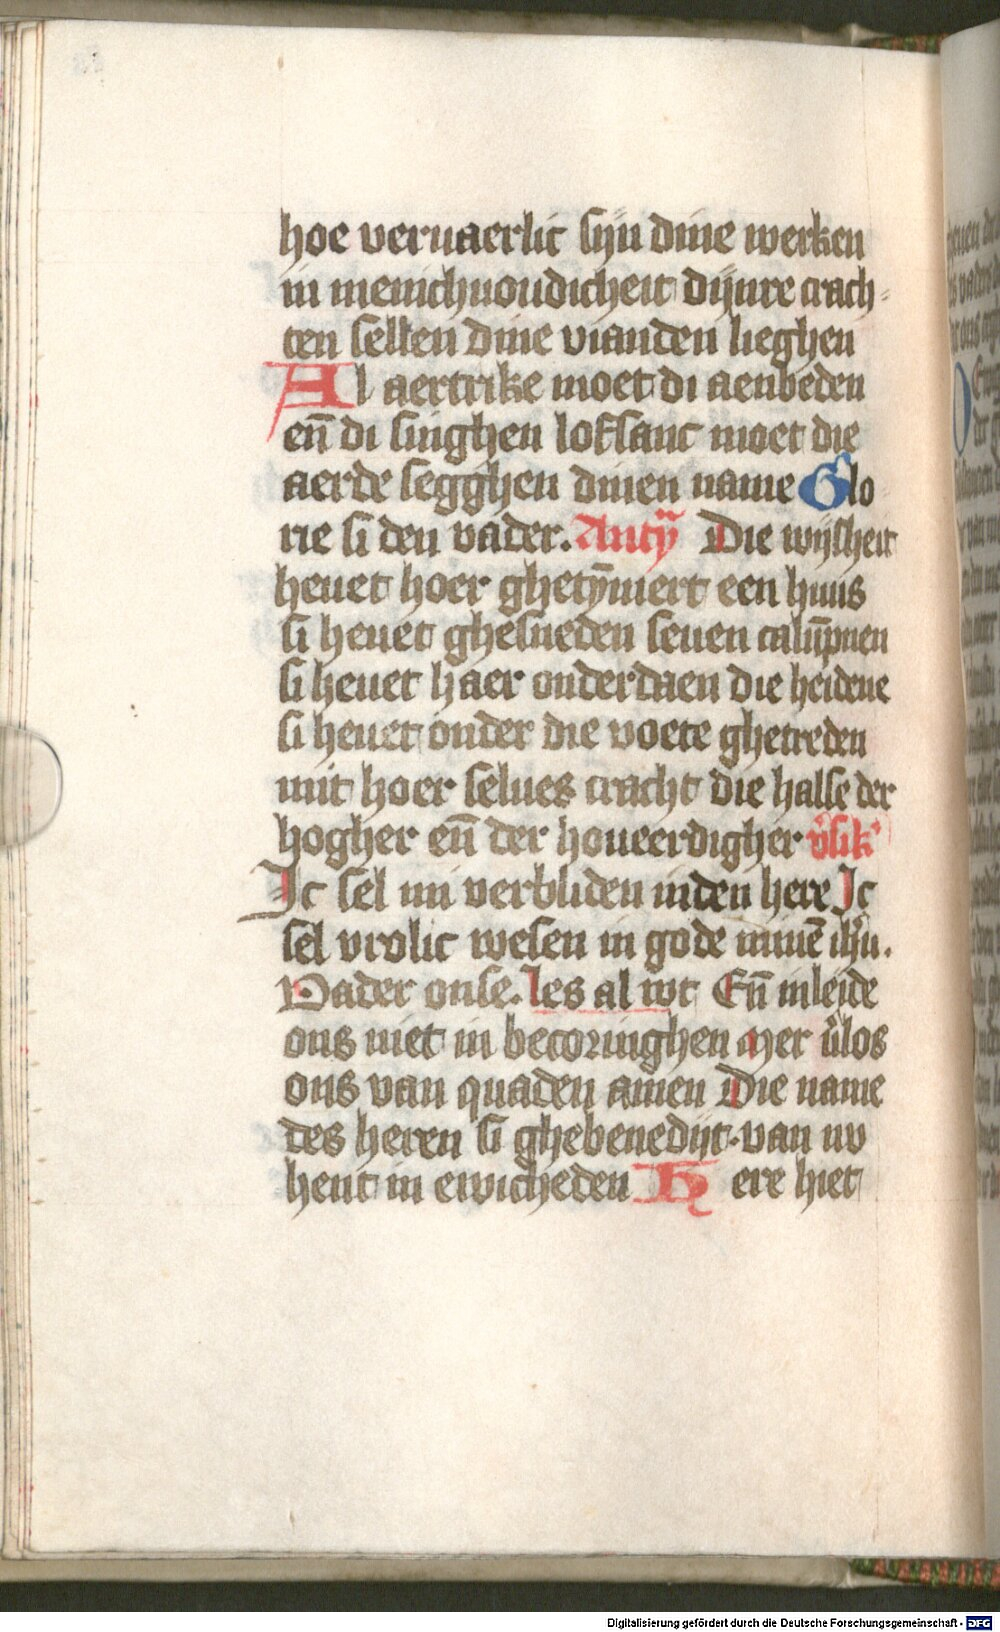 hoe veruaerlic sijn dine werken
in menichuoudicheit dijnre crach-
ten sellen dine vianden lieghen
Al aertrike moet di aenbeden
eñ di singhen lofsanc moet die
aerde segghen dinen name Glo
rie si den vader. Antÿ Die wijsheit
heuet hoer ghetȳmert een huus
si heuet ghesneden seuen calūpnen
si heuet haer onderdaen die heidene
si heuet onder die voete ghetreden
mit hoer selues cracht die halse der
hogher eñ der houeerdigher v̾sik̾
Ic sel mi verbliden inden here Ic
sel vrolic wesen in gode minē ihū.
Vader onse. les al wt Eñ inleide
ons niet in becoringhen Mer v̾los
ons van quaden amen Die name
des heren si ghebenedijt. van nv
hent in ewicheden Here hiet
Digitalisierung gefördert durch die Deutsche Forschungsgemeinschaft - DFG